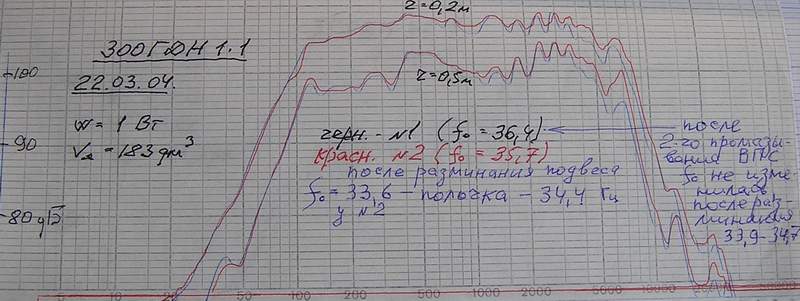 r=0,2м
300ГДН 1.1
22.03.04.
W=1 Вт
Vя=183 дм³
r=0,5м
100
90
80 дБ
черн. - №1 (f₀=36,4)
красн. №2 (f₀=35,7)
после разминания подвеса
f₀=33,6 - полочка - 34,4 Гц
у №2
после
2-го промазывания ВПС
f₀ не изменилась
после разминания
33,9-34,7
20
50
100
200
500
1000
2000
5000
10000